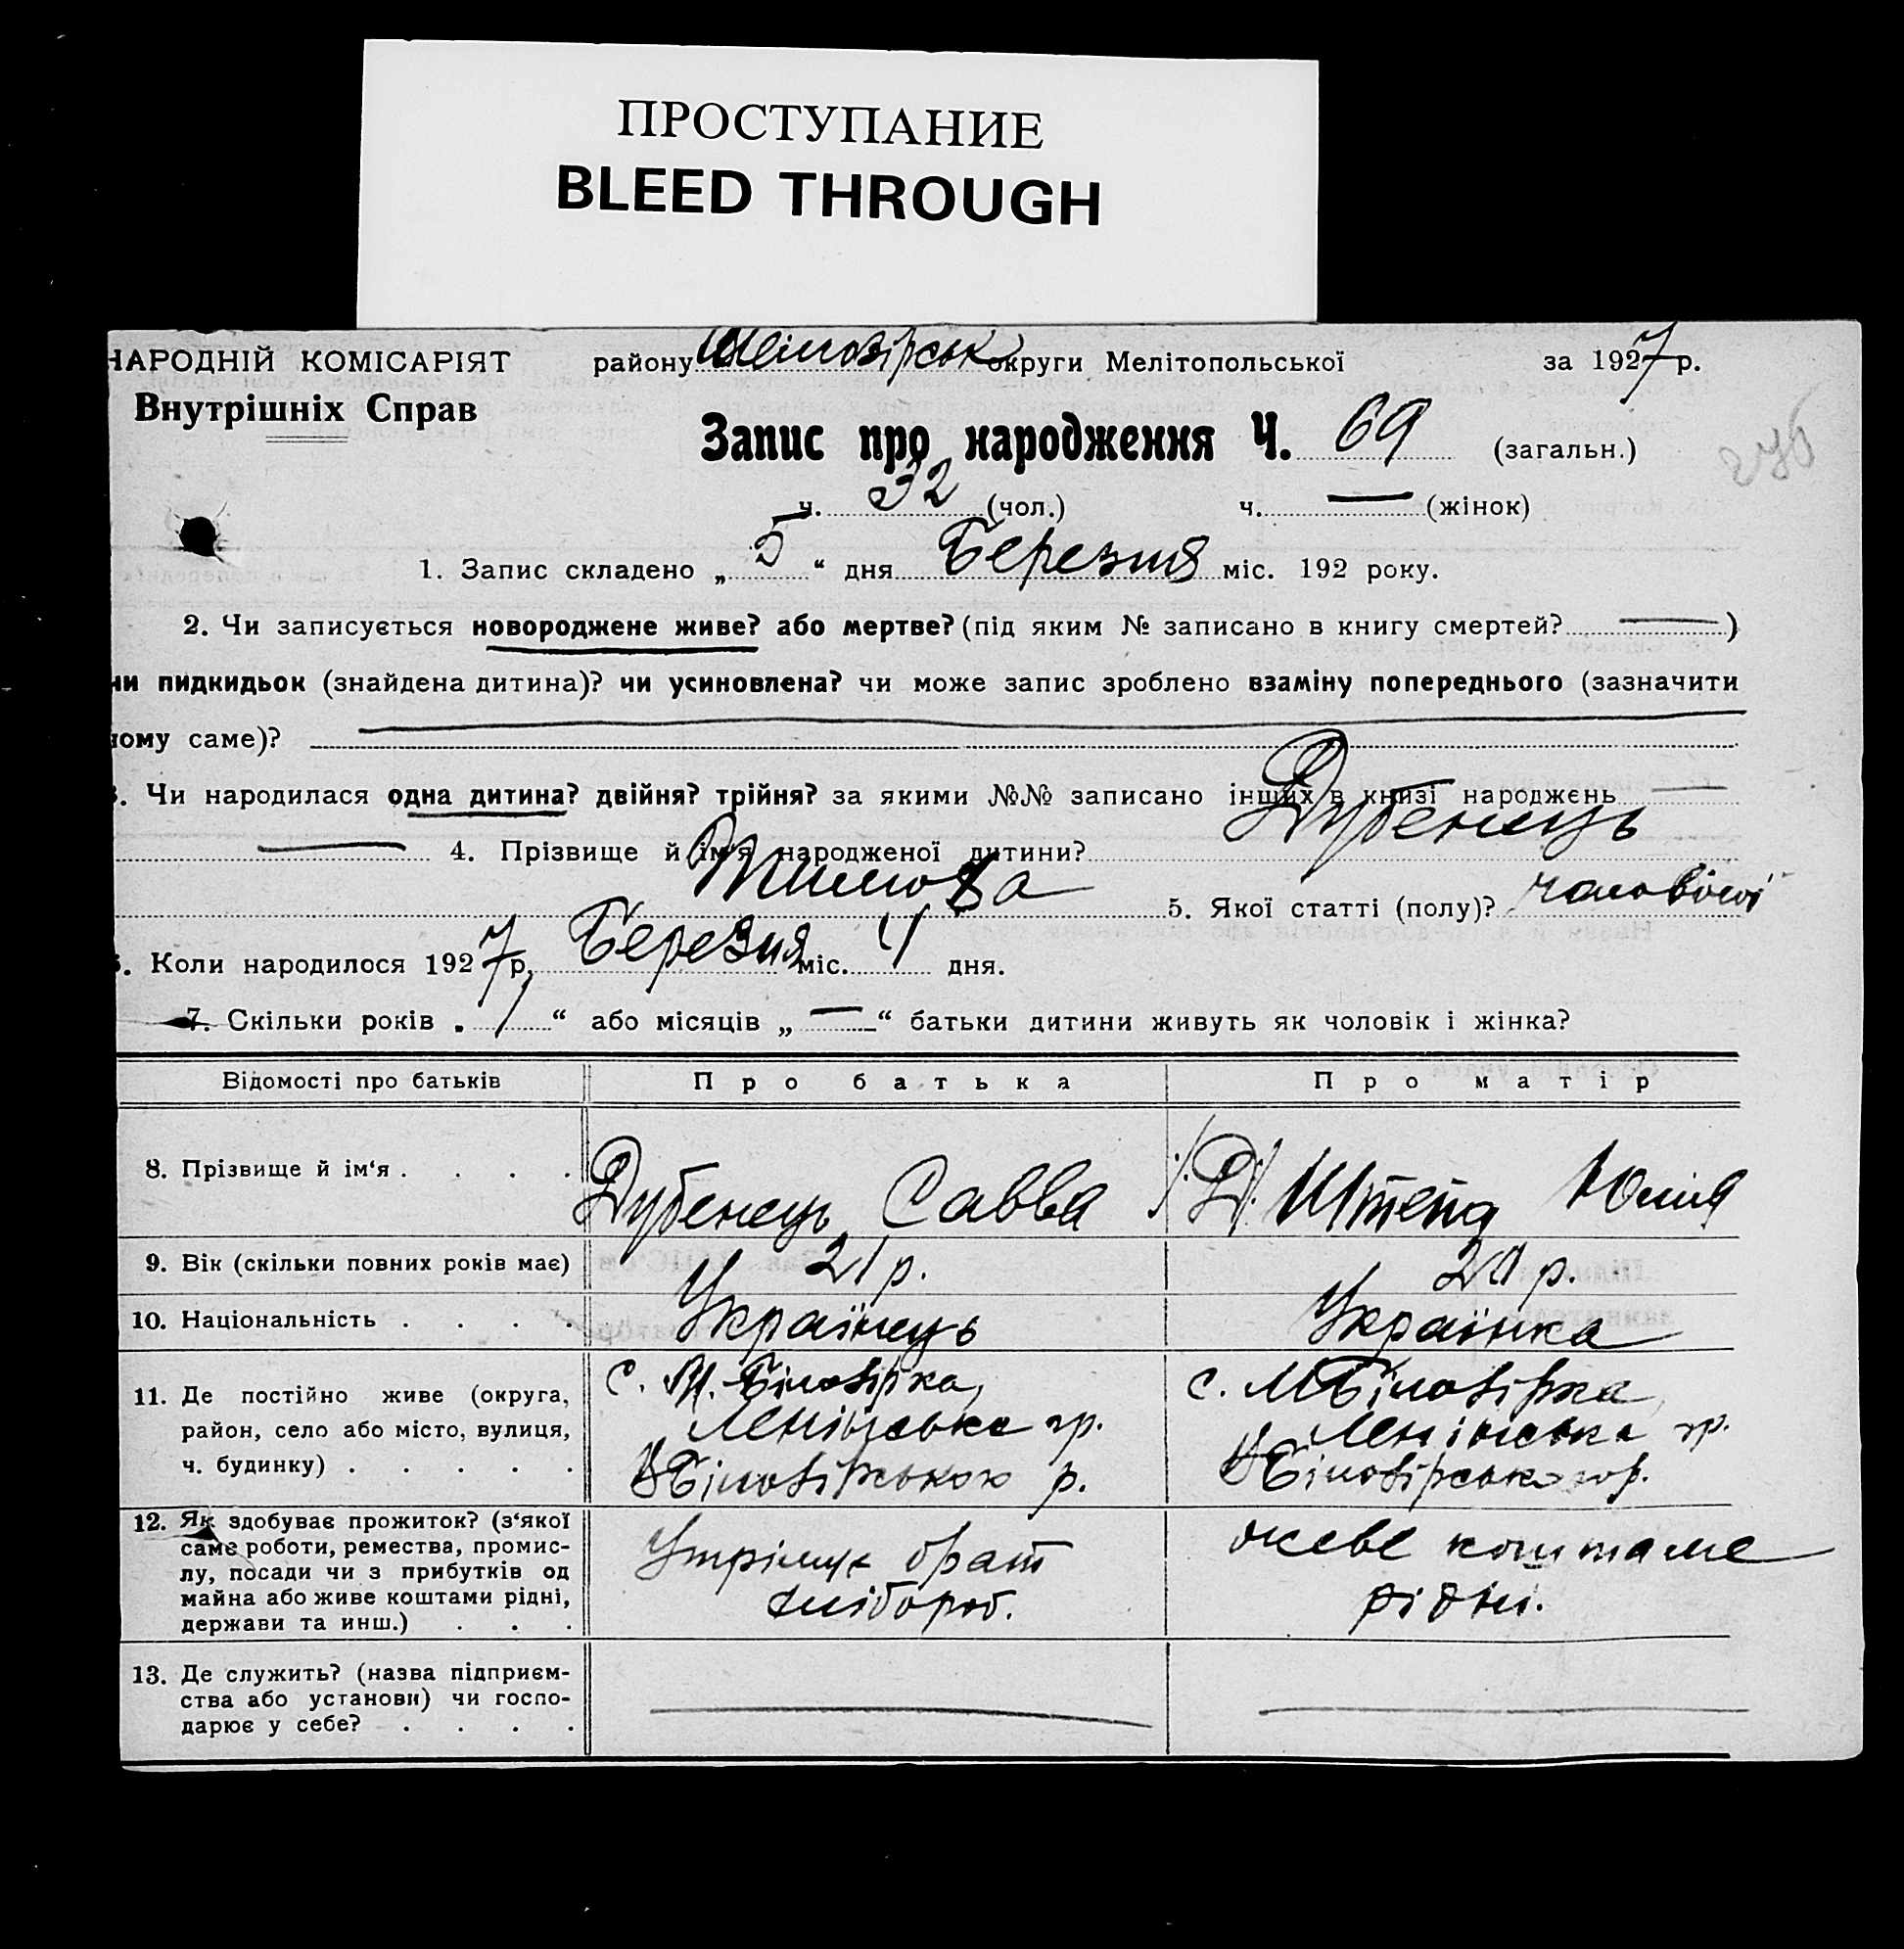 ПРОСТУПАНИЕ
BLEED THROUGH
НАРОДНІЙ КОМІСАРІЯТ району округи Мелітопольської за 1927 р.
Внутрішніх Справ
Запис про народження Ч. 69 (загальн.)
ч. 32 (чол.) ч. — (жінок)
1. Запис складено „ 5 “ дня Березня міс. 192 року.
2. Чи записується новороджене живе? або мертве? (під яким № записано в книгу смертей? — )
чи пидкидьок (знайдена дитина)? чи усиновлена? чи може запис зроблено взаміну попереднього (зазначити
чому саме)? —
3. Чи народилася одна дитина? двійня? трійня? за якими №№ записано інших в книзі народжень —
— 4. Прізвище й ім'я народженої дитини? Дубенець
5. Якої статті (полу)?
6. Коли народилося 1927 р. Березня міс. 4 дня.
7. Скільки років „ 1 “ або місяців „ — “ батьки дитини живуть як чоловік і жінка?
Відомості про батьків Про батька Про матір
8. Прізвище й ім‘я . . . . Дубенець Савва /Д/. Штепа Юлія
9. Вік (скільки повних років має) 21 р. р.
10. Національність . . . . Українець Українка
11. Де постійно живе (округа, с. М. Білозірка, с. М Білозірка,
район, село або місто, вулиця, Ленінська гр. Ленінська гр.
ч. будинку) . . . . . р.
12. Як здобуває прожиток? (з‘якої
саме роботи, ремества, промис-
лу, посади чи з прибутків од
майна або живе коштами рідні,
держави та инш.) . . .
Утрімує брат
хлібороб.
живе коштаме
рідні.
13. Де служить? (назва підприєм-
ства або установи) чи госпо-
дарює у себе? . . . .